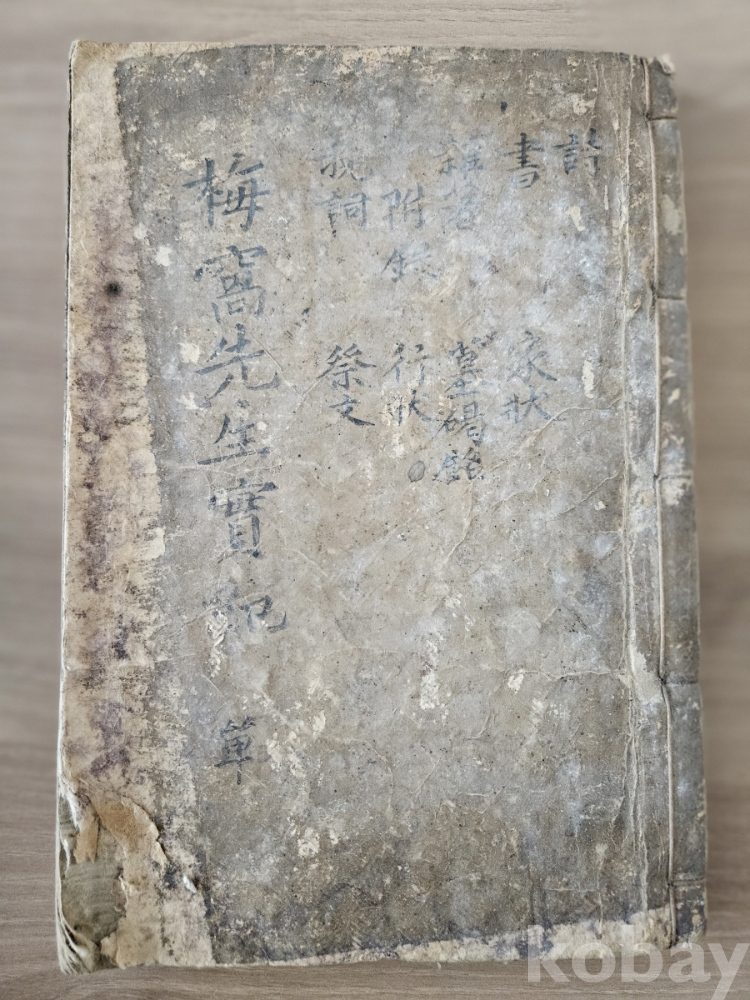 詩
書 家狀
雜著 墓碣銘
附錄 行狀
祝詞 祭文
梅窩先生實紀 單
kobay